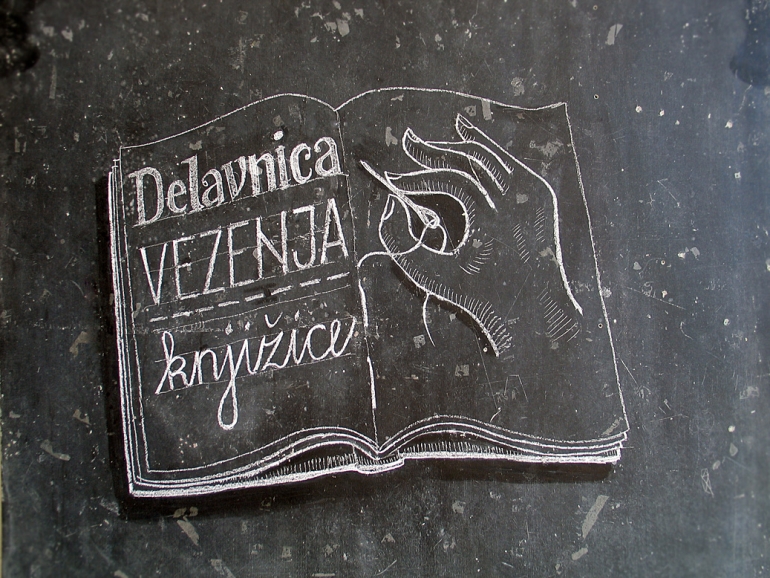 Delavnica
VEZENJA
knjižice